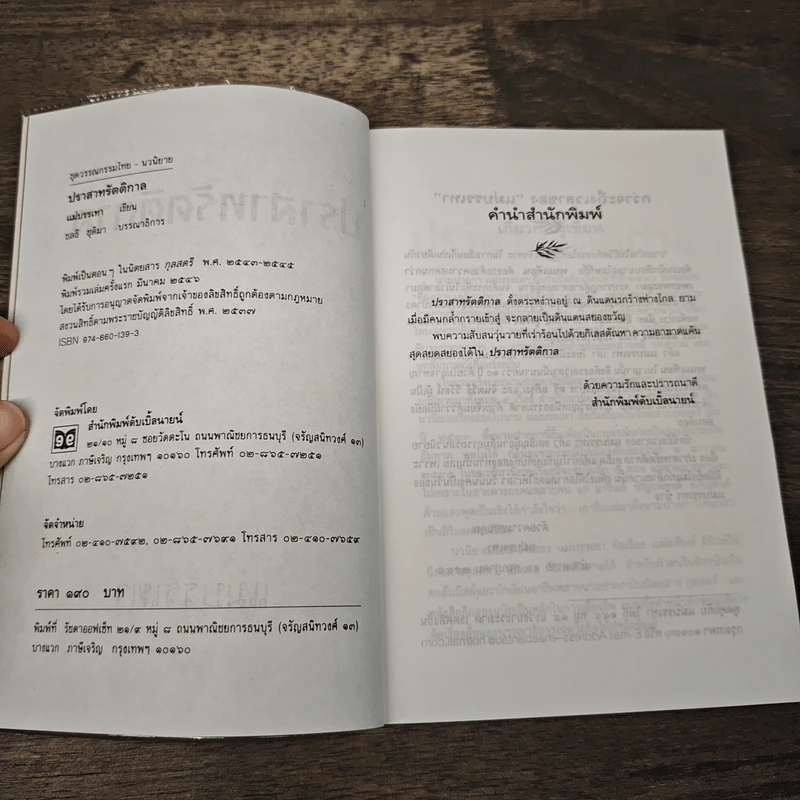 ชุดวรรณกรรมไทย - นวนิยาย
ปราสาทรัตติกาล
แม่บรรเทา เขียน
ชลธี ชุติมา บรรณาธิการ
พิมพ์เป็นตอน ๆ ในนิตยสาร กุลสตรี พ.ศ. ๒๕๔๓-๒๕๔๕
พิมพ์รวมเล่มครั้งแรก มีนาคม ๒๕๔๖
โดยได้รับการอนุญาตจัดพิมพ์จากเจ้าของลิขสิทธิ์ถูกต้องตามกฎหมาย
สงวนสิทธิ์ตามพระราชบัญญัติลิขสิทธิ์ พ.ศ. ๒๕๓๗
ISBN 974-660-139-3
จัดพิมพ์โดย
สำนักพิมพ์ดับเบิ้ลนายน์
๒๑/๑๐ หมู่ ๘ ซอยวัดตะโน ถนนพาณิชยการธนบุรี (จรัญสนิทวงศ์ ๑๓)
บางแวก ภาษีเจริญ กรุงเทพฯ ๑๐๑๖๐ โทรศัพท์ ๐๒-๘๖๕-๗๒๕๑
โทรสาร ๐๒-๘๖๕-๗๒๕๑
จัดจำหน่าย
โทรศัพท์ ๐๒-๔๑๐-๗๕๙๒, ๐๒-๘๖๕-๗๖๙๑ โทรสาร ๐๒-๔๑๐-๗๖๕๙
ราคา ๑๙๐ บาท
พิมพ์ที่ รัชดาออฟเซ็ท ๒๑/๙ หมู่ ๘ ถนนพาณิชยการธนบุรี (จรัญสนิทวงศ์ ๑๓)
บางแวก ภาษีเจริญ กรุงเทพฯ ๑๐๑๖๐
คำนำสำนักพิมพ์
ปราสาทรัตติกาล ตั้งตระหง่านอยู่ ณ ดินแดนรกร้างห่างไกล ยาม
เมื่อมีคนกล้ำกรายเข้าสู่ จะกลายเป็นดินแดนสยองขวัญ
พบความสับสนวุ่นวายที่เร่าร้อนไปด้วยกิเลสตัณหา ความอาฆาตแค้น
สุดสยดสยองได้ใน ปราสาทรัตติกาล
ด้วยความรักและปรารถนาดี
สำนักพิมพ์ดับเบิ้ลนายน์